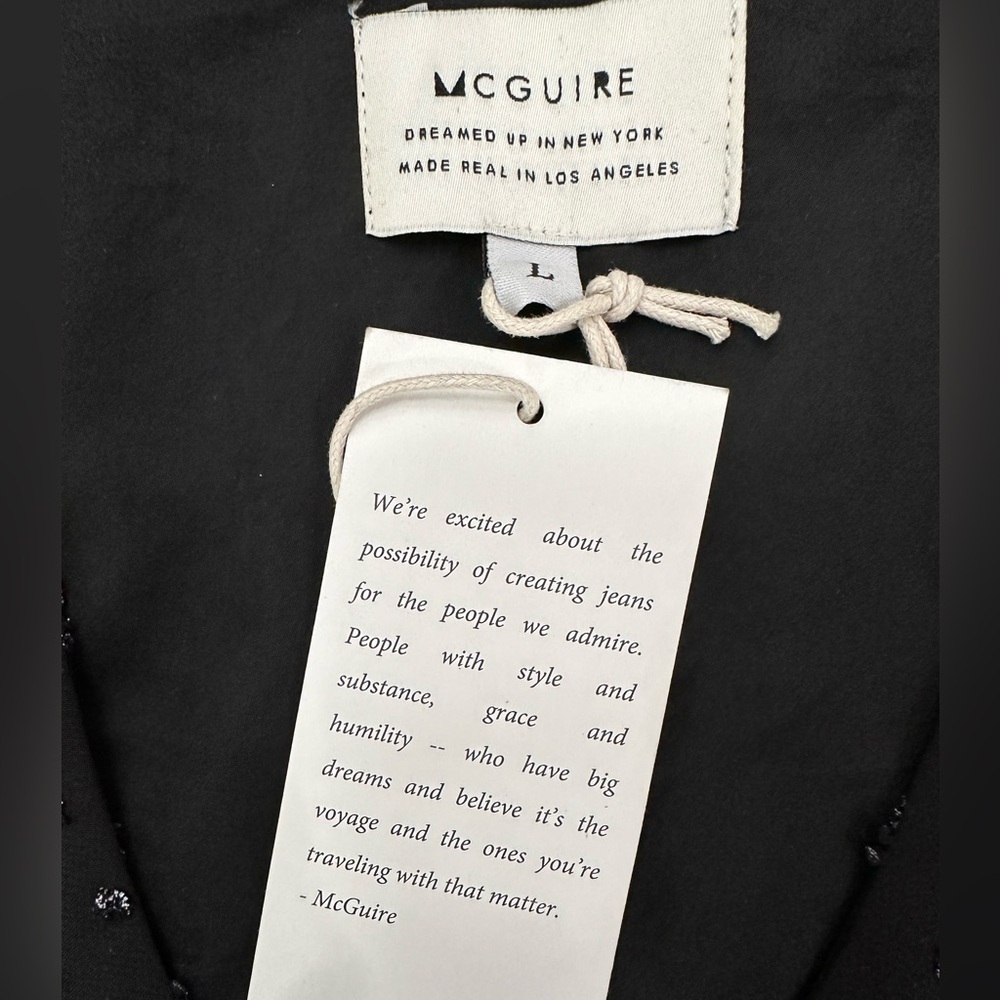 MCGUIRE
DREAMED UP IN NEW YORK
MADE REAL IN LOS ANGELES
L
We're excited about the
possibility of creating jeans
for the people we admire.
People with style and
substance, grace and
humility -- who have big
dreams and believe it's the
voyage and the ones you're
traveling with that matter.
- McGuire